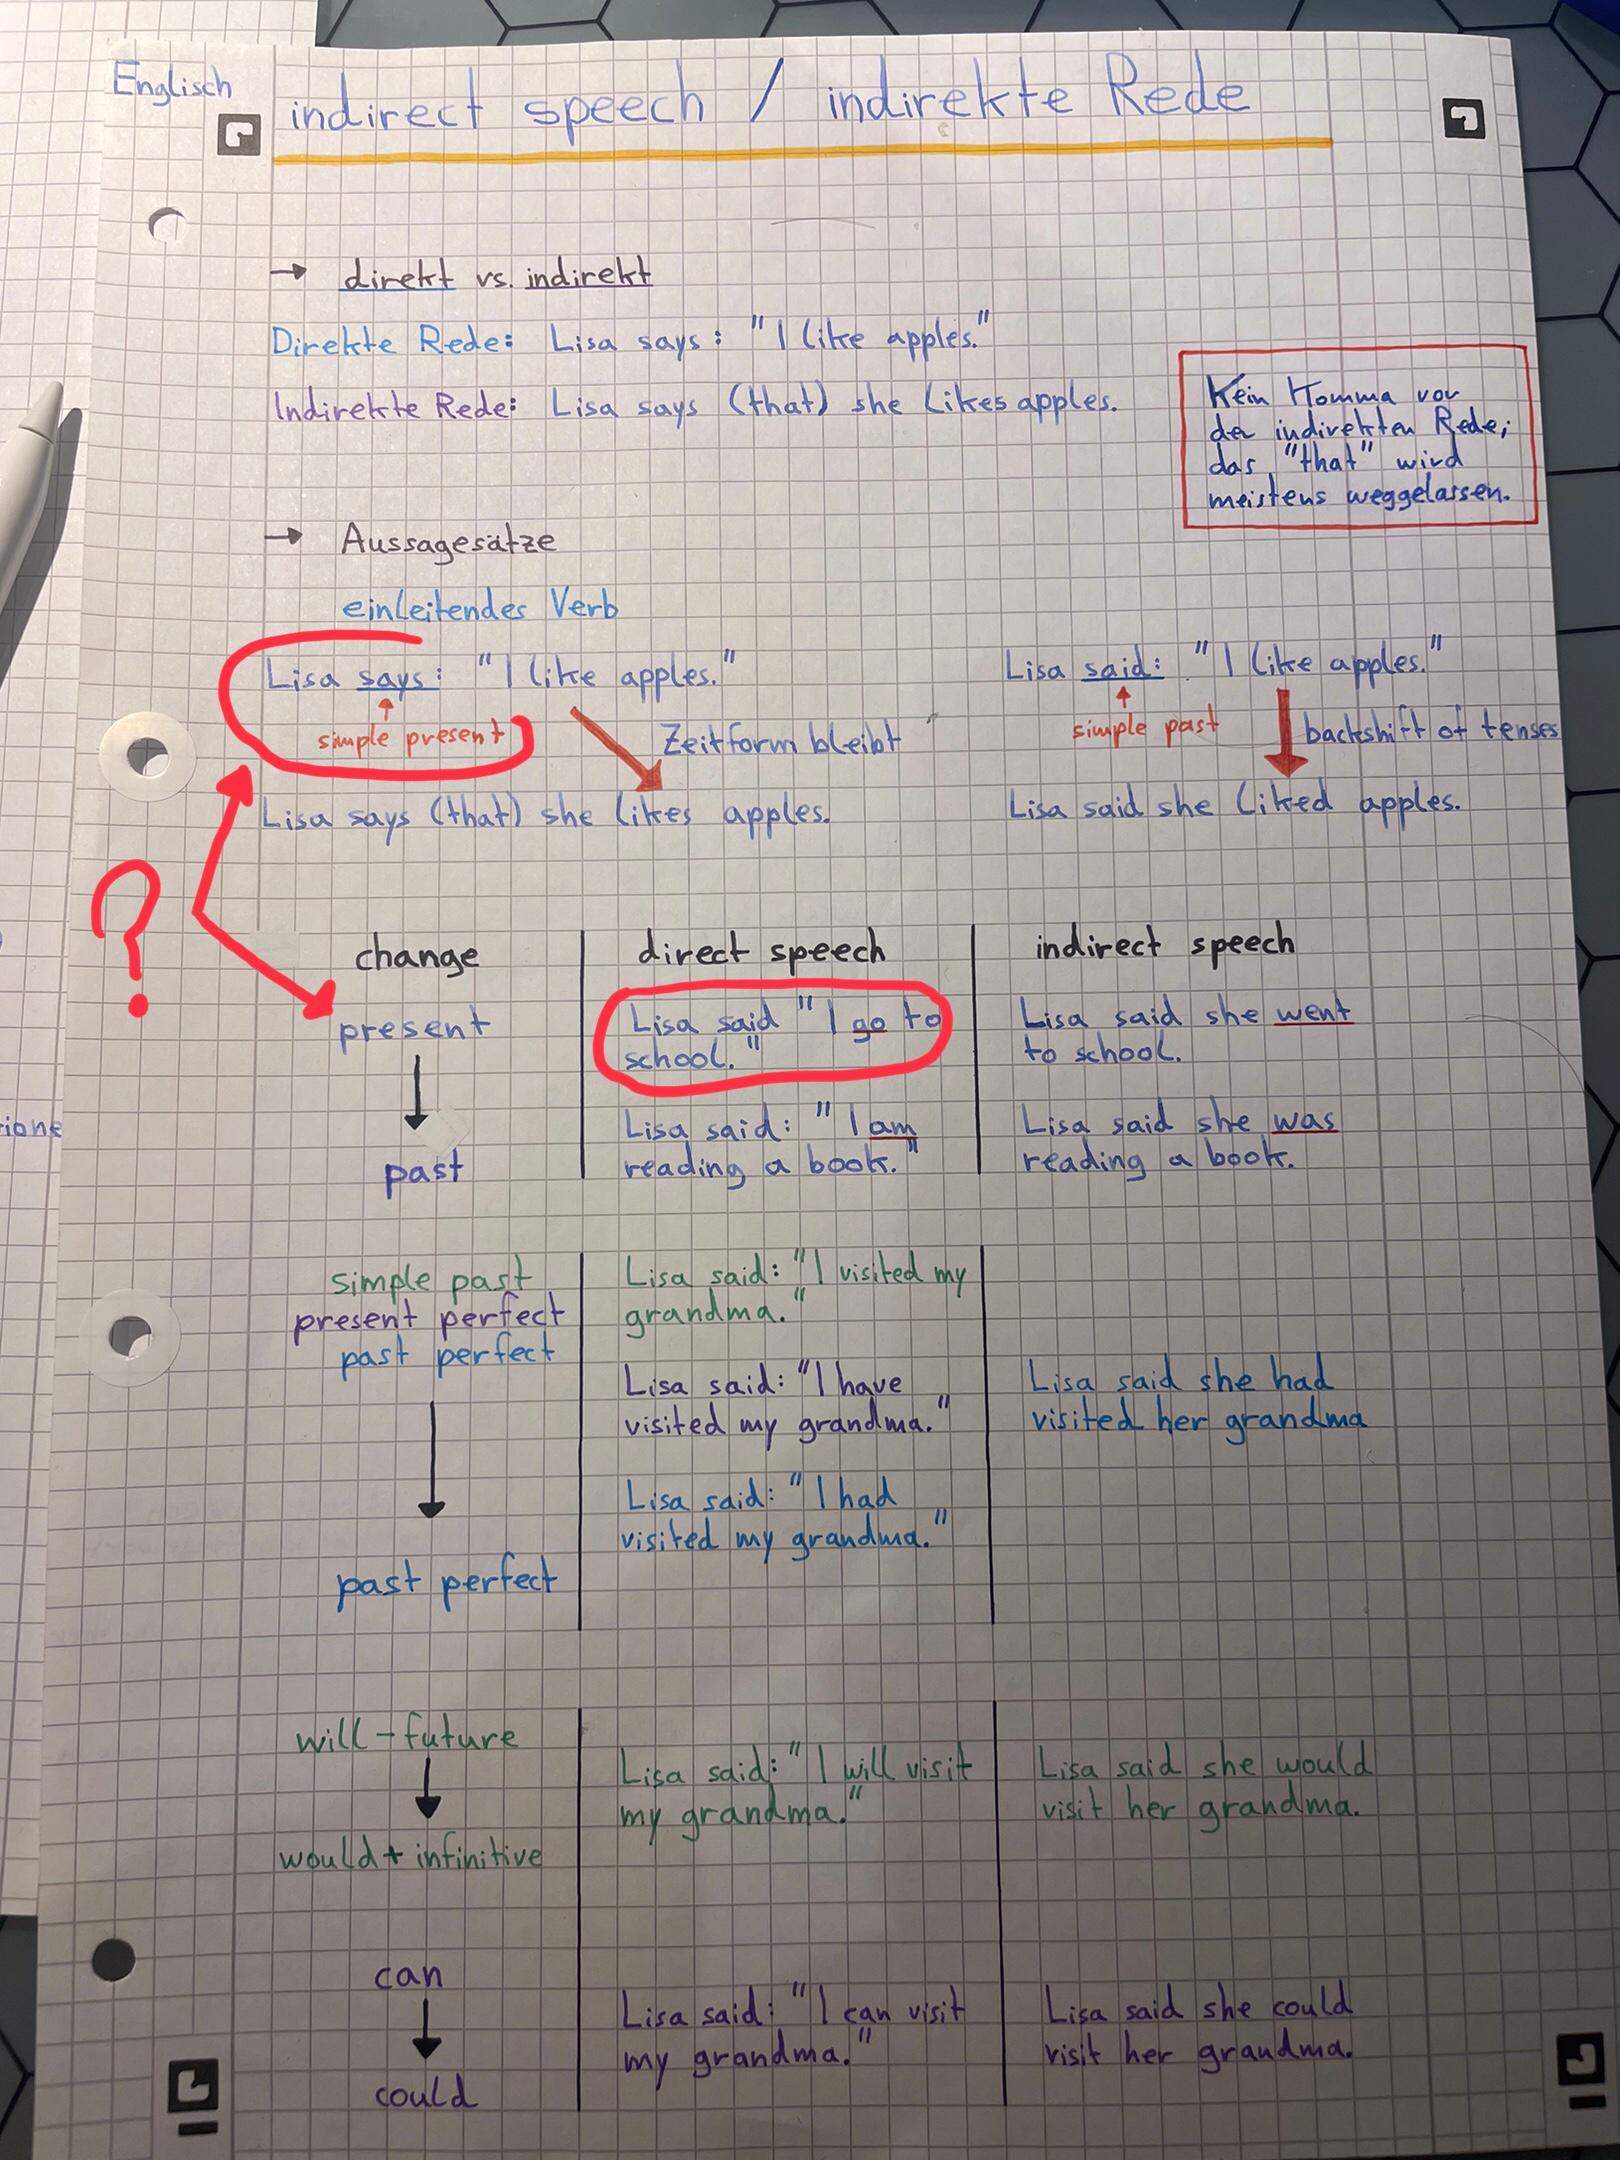 Englisch
indirect speech / indirekte Rede
→ direkt vs. indirekt
Direkte Rede: Lisa says: "I like apples."
Indirekte Rede: Lisa says (that) she likes apples.
Kein Komma vor
der indirekten Rede;
das "that" wird
meistens weggelassen.
→ Aussagesätze
einleitendes Verb
Lisa says: "I like apples."
simple present
Zeitform bleibt
Lisa says (that) she likes apples.
Lisa said: "I like apples."
simple past
backshift of tenses
Lisa said she liked apples.
?
change
direct speech
indirect speech
present
past
Lisa said "I go to
school."
Lisa said she went
to school.
Lisa said: "I am
reading a book."
Lisa said she was
reading a book.
simple past
present perfect
past perfect
past perfect
Lisa said: "I visited my
grandma."
Lisa said: "I have
visited my grandma."
Lisa said: "I had
visited my grandma."
Lisa said she had
visited her grandma
will-future
would + infinitive
Lisa said: "I will visit
my grandma."
Lisa said she would
visit her grandma.
can
could
Lisa said: "I can visit
my grandma."
Lisa said she could
visit her grandma.